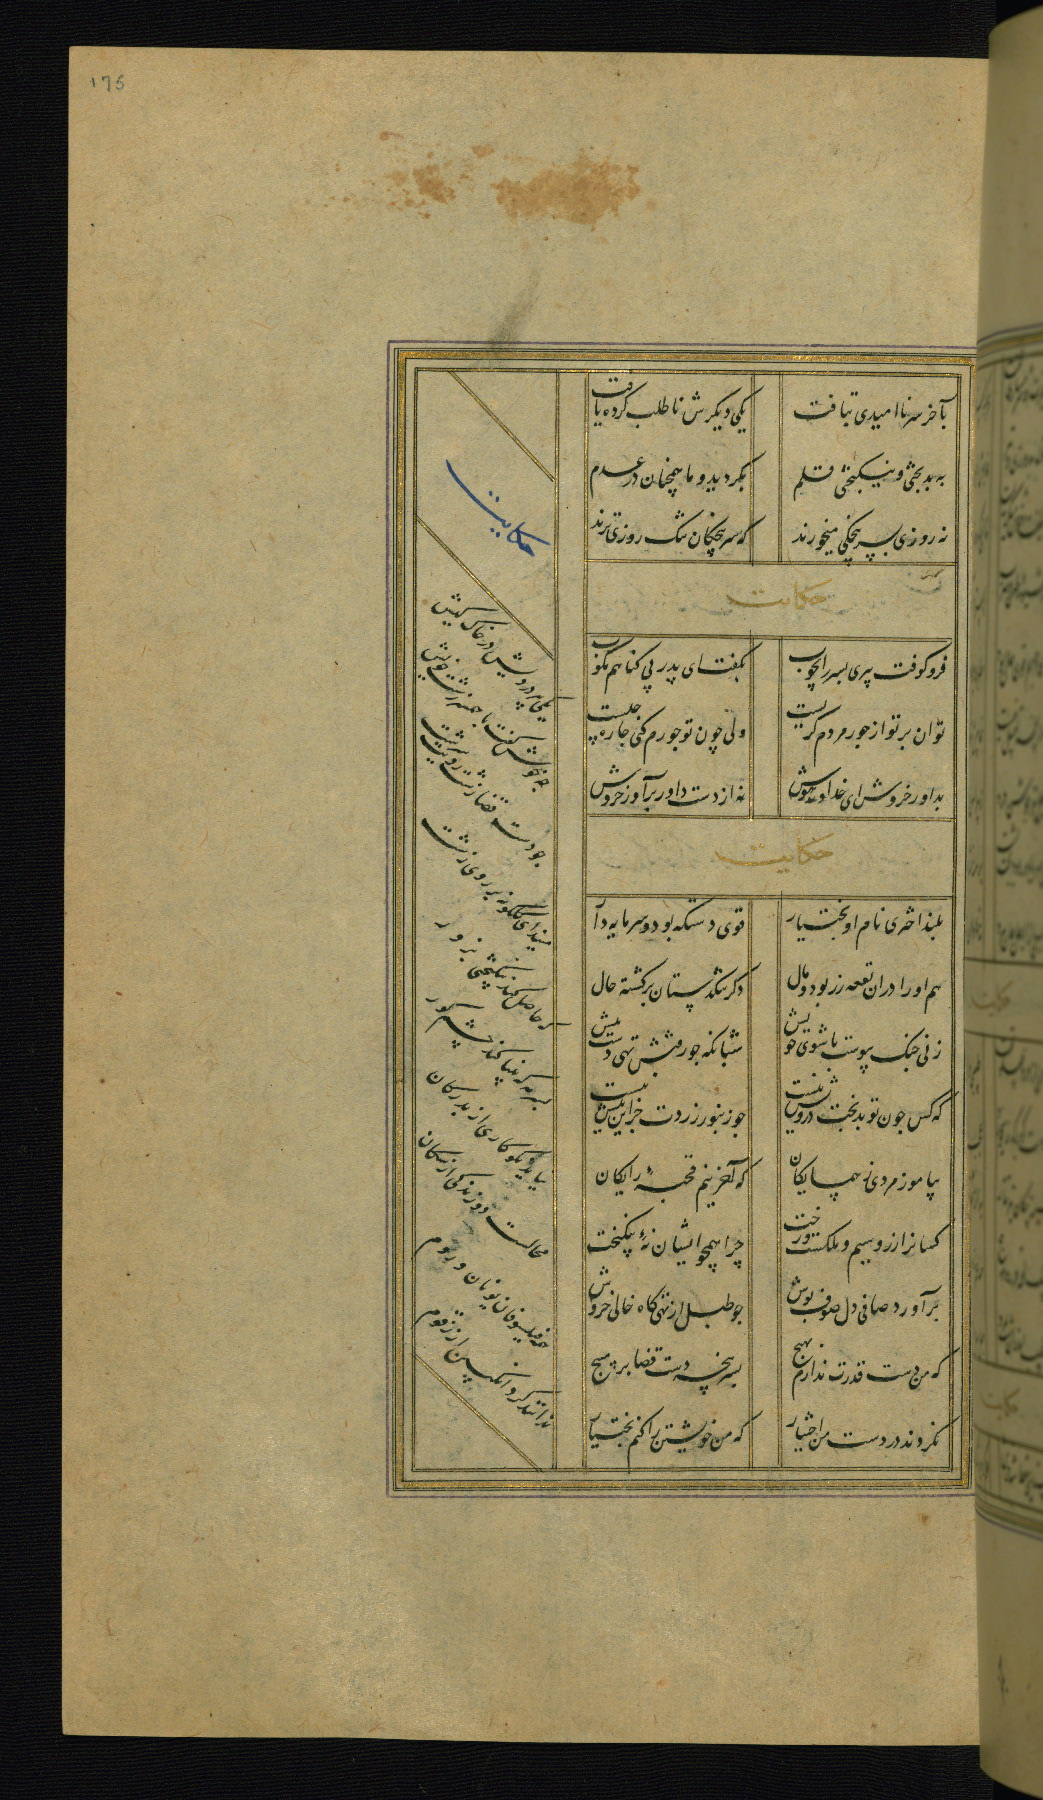 175
بآخر سر ناامیدی بتافت
یکی دیگرش ناطلب کرده یافت
به بدبختی و نیکبختی قلم
بگردید و ما همچنان در عدم
نه روزی بسرپنجکی میخورند
که سرپنجکان تنک روزی ترند
حکایت
فرو کوفت پیری پسر را بچوب
بگفت ای پدر بی کناهم مکوب
توان بر تو از جور مردم کریست
ولی چون تو جورم کنی چاره چیست
بداور خروش ای خداوند هوش
نه از دست داور برآور خروش
حکایت
بلند اختری نام او بختیار
قوی دستکه بود و سرمایه دار
هم او را دران بقعه زر بود و مال
دکر تنکدستان برکشته حال
زنی جنک پیوست با شوی خویش
شبانکه چو رفتش تهی دست پیش
که کس چون تو بدبخت درویش نیست
چو زنبور زردت جز این نیش نیست
بیاموز مردی ز همسایکان
که آخر نیم قحبهٔ رایکان
کسانرا زر و سیم و ملکست و رخت
چرا همچو ایشان نهٔ نیکبخت
برآورد صافی دل صوف پوش
چو طبل از تهی کاه خالی خروش
که من دست قدرت ندارم بهیچ
بسرپنجه دست قضا بر مپیچ
نکردند در دست من اختیار
که من خویشتن را کنم بختیار
حکایت
یکی پیر درویش در خاک کیش
چه خوش کفت با همسر زشت خویش
چو دست قضا زشت رویت سرشت
میندای کلکونه بر روی زشت
که حاصل کند نیکبختی بزور
بسرمه که بینا کند چشم کور
نیاید نکوکاری از بدرکان
محالست دوزندکی از سکان
همه فیلسوفان یونان و روم
ندانند کرد انکبین از زقوم